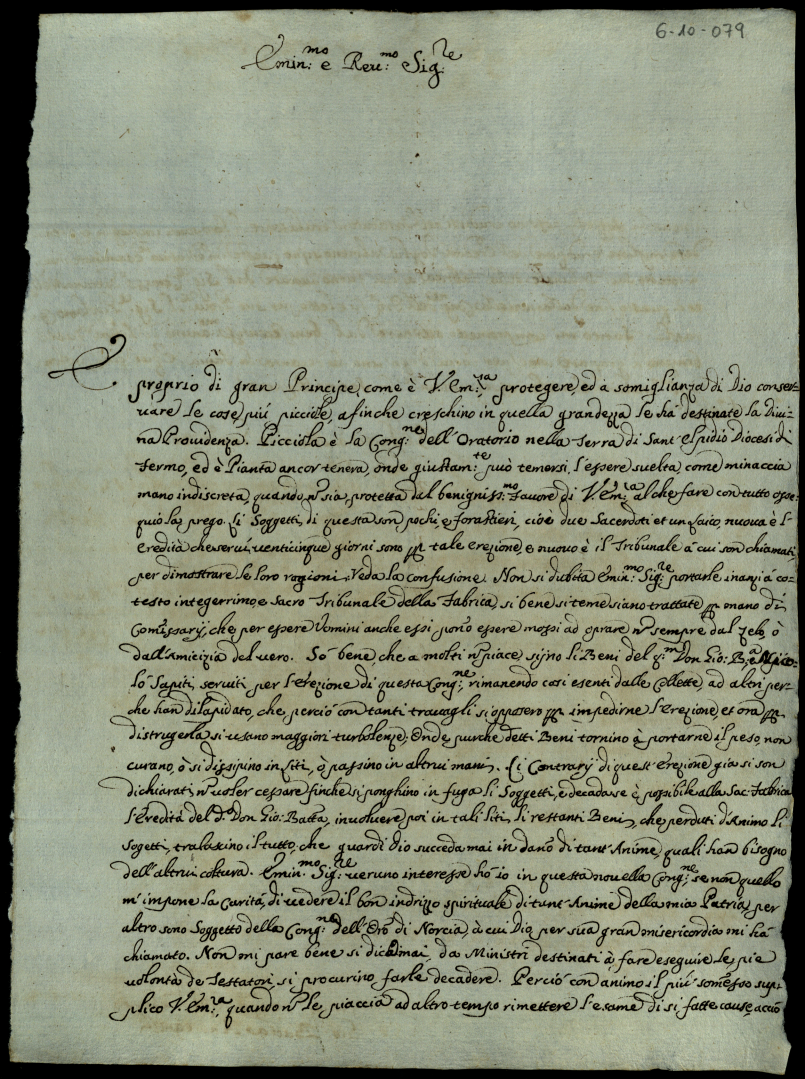 6-10-079
Emin:mo e Reu:mo Sig:re
È proprio di gran Principe, come è V.Em:za protegere, ed à somiglianza di Dio conser-
uare le cose più picciole, afinche creschino in quella grandezza le hà destinate la Diui-
na Prouidenza. Picciola è la Cong:ne dell'Oratorio nella Terra di Sant'Elpidio Diocesi di
Fermo, ed è Pianta ancor tenera, onde giustam:te può temersi l'essere suelta, come minaccia
mano indiscreta, quando nõ sia protetta dal benigniss:mo fauore di V.Em:za al che fare con tutto osse-
quio la prego. Li Soggetti di questa son pochi e forastieri, cioè due Sacerdoti et un Laico, nuoua è l'
eredità che serui, venticinque giorni sono p tale erezione, e nuouo è il Tribunale à cui son chiamati,
per dimostrare le loro ragioni. Veda la confusione. Non si dubita Emin:mo Sig:re portarle inanzi à co-
testo integerrimo e Sacro Tribunale della Fabrica, si bene si teme siano trattate p mano di
Comissarij, che per essere Uomini anche essi ponõ essere mossi ad oprare nõ sempre dal zelo, ò
dall'Amicizia del uero. Sò bene, che a molti nõ piace, sijno li Beni del q:m Don Gio: B:a
Sapiti, seruiti per l'erezione di questa Cong:ne, rimanendo così esenti dalle Collette, ad altri per-
che han dilapidato, che perciò con tanti trauagli si opposero p impedirne l'erezione, et ora p
distrugerla si usano maggiori turbolenze; Onde purche detti Beni tornino à portarne il peso, non
curano, ò si dissipino in Liti, ò passino in altrui mani. Li Contrarij di quest'erezione già si son
dichiarati, nõ uoler cessare finche si ponghino in fuga li Soggetti, e decadasse è possibile alla Sac: Fabrica
l'eredità del d:o Don Gio: Batta, inuoluere poi in tali Liti li restanti Beni, che perduti d'Animo li
Sogetti, tralascino il tutto, che guardi Dio succeda mai in danõ di tant'Anime, quali han bisogno
dell'altrui coltura. Emin:mo Sig:re ueruno interesse hò io in questa nouella Cong:ne, se non quello
m'impone la Carità, di uedere il bon indrizzo spirituale di tant'Anime della mia Patria, per
altro sono Soggetto della Cong:ne dell'Oro di Norcia, à cui Dio, per sua gran misericordia mi hà
chiamato. Non mi pare bene si dica mai, da Ministri destinati à fare eseguire le pie
uolontà de Testatori, si procurino farle decadere. Perciò con animo il più somesso sup-
plico V.Em:za, quando nõ le piaccia ad altro tempo rimettere l'esame di si fatte cause, acciò